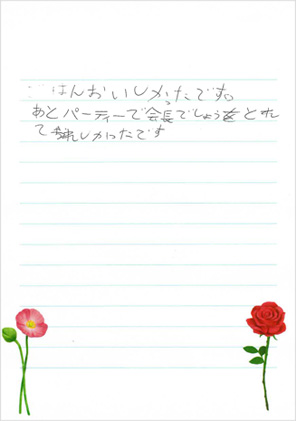 ごはんおいしかったです。
あとパーティーで会長でしょうをとれ
て嬉しかったです